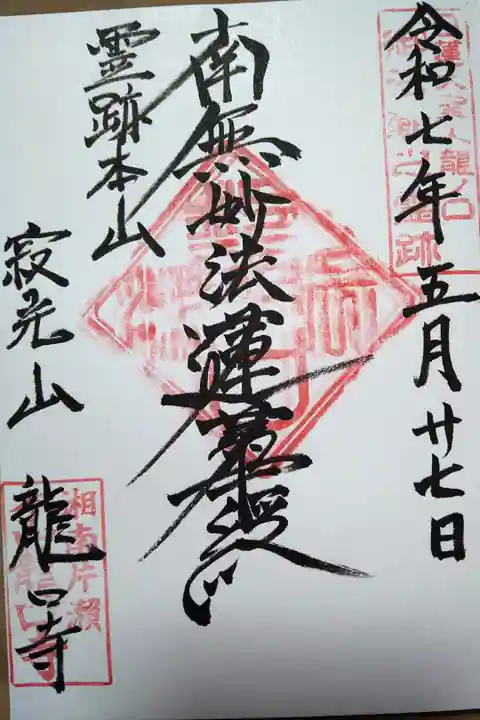 令和七年五月廿七日
南無妙法蓮華経
霊跡本山
寂光山 龍口寺
相南片瀬
龍口寺